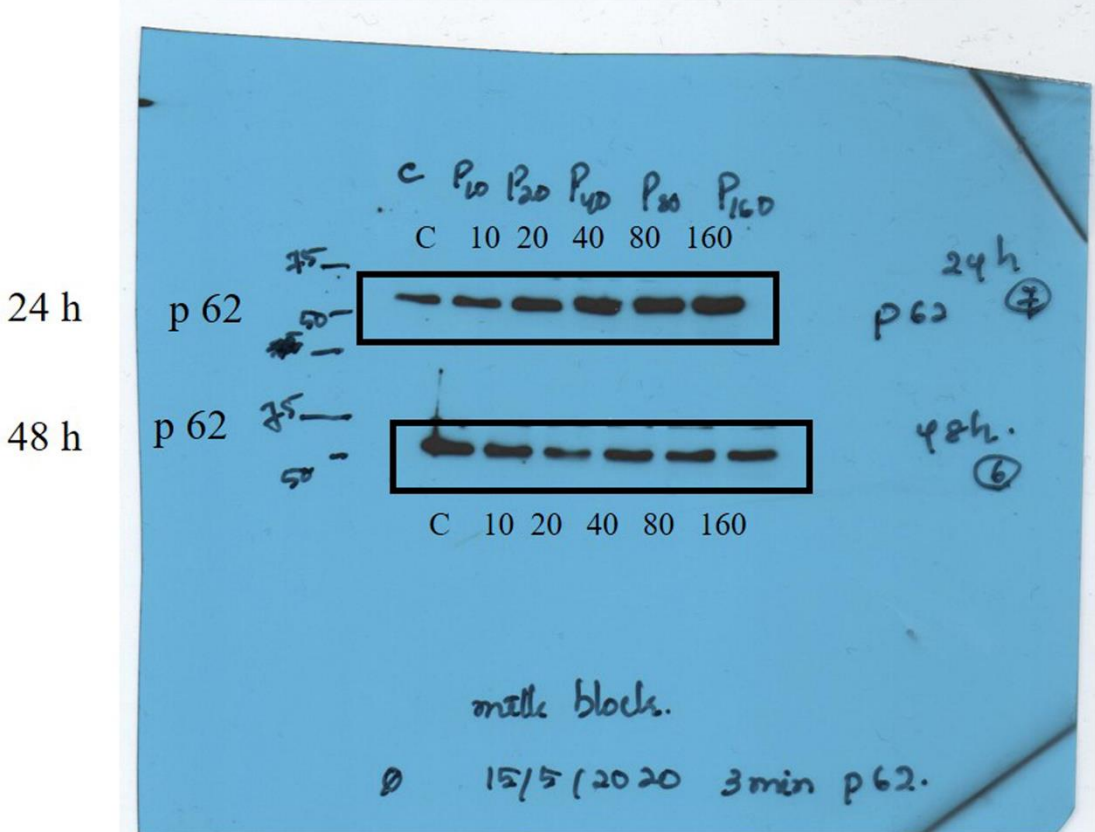 C P10 P20 P40 P80 P160
C 10 20 40 80 160
75
24 h
24 h p 62 50 p62 7
75
48 h p 62 48h.
50 6
C 10 20 40 80 160
milk block.
15/5/2020 3min p62.